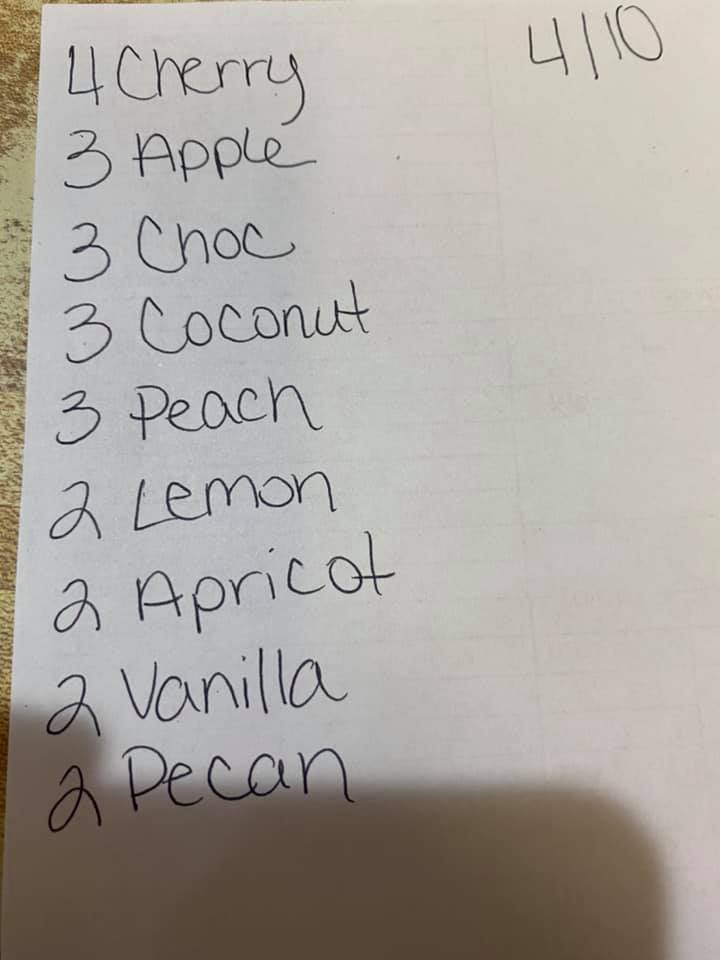 4 Cherry 4/10
3 Apple
3 Choc
3 Coconut
3 Peach
2 Lemon
2 Apricot
2 Vanilla
2 Pecan